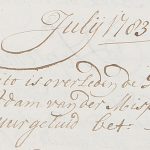 July 1783
to is overleden de
dam van der Meis
uurgeluid bet: